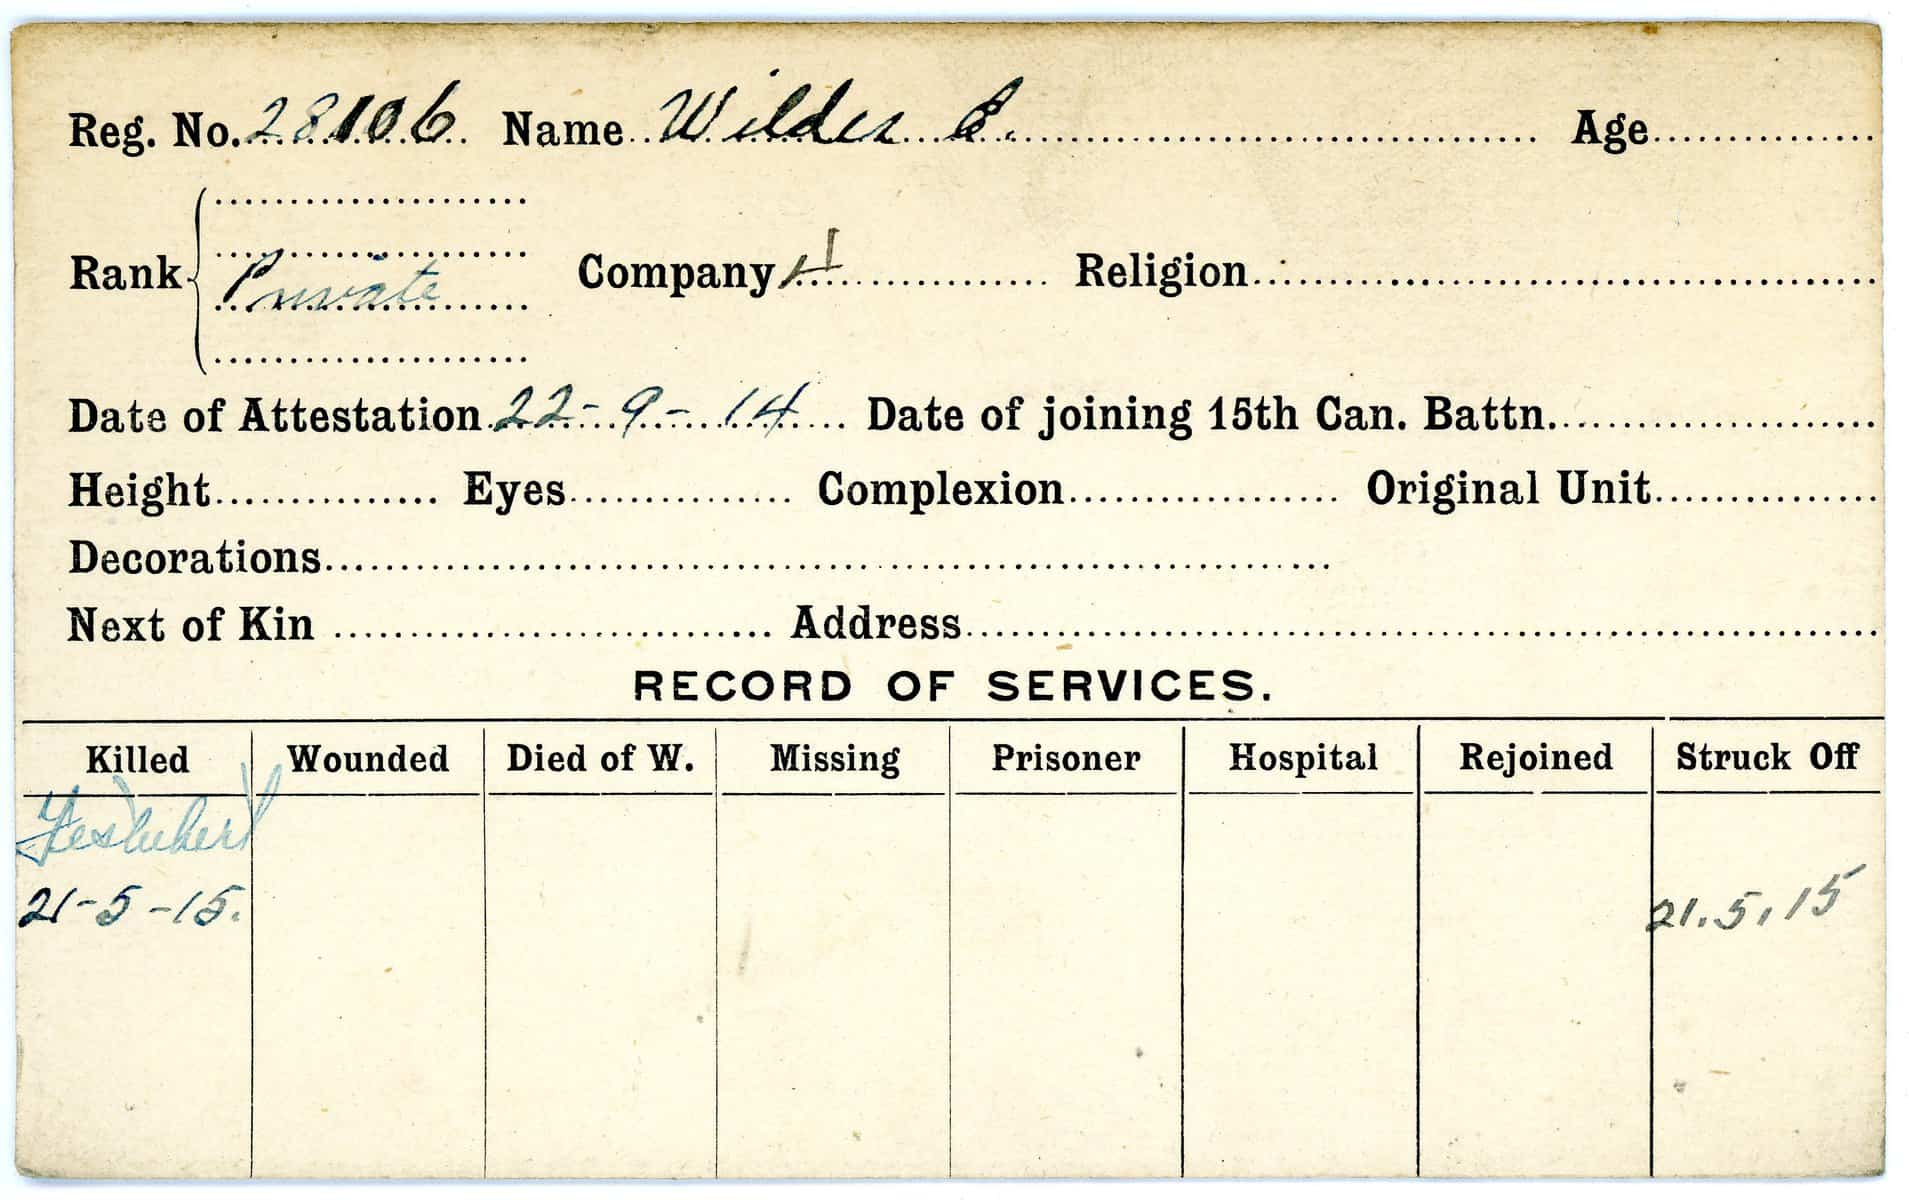 Reg. No. 28106 Name Wilder E. Age
Rank Private Company 4 Religion
Date of Attestation 22-9-14 Date of joining 15th Can. Battn.
Height Eyes Complexion Original Unit
Decorations
Next of Kin Address
RECORD OF SERVICES.
Killed Wounded Died of W. Missing Prisoner Hospital Rejoined Struck Off
Festubert
21-5-15. 21.5.15